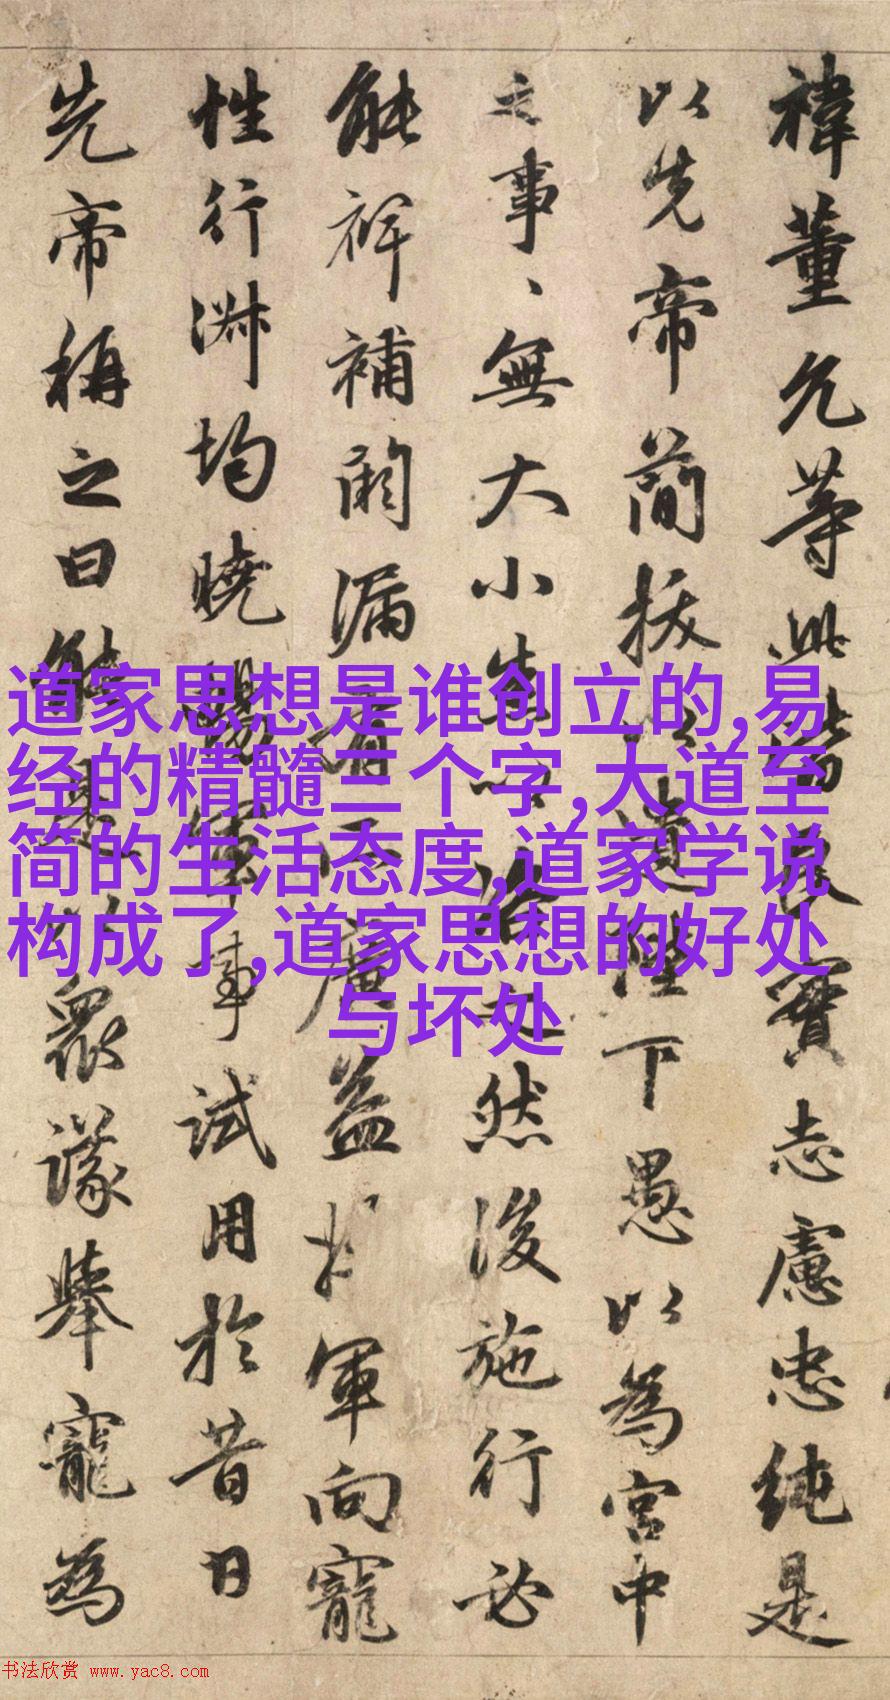 禕董允等此皆良實志慮忠純是
以先帝簡拔以遺陛下愚以為宮中
之事、無大小悉以咨之然後施行必
能裨補闕漏有所廣益將軍向寵
性行淑均曉暢軍事試用於昔日
先帝稱之曰能是以衆議舉寵為
道家思想是谁创立的,易
经的精髓三个字,大道至
简的生活态度,道家学说
构成了,道家思想的好处
与坏处
书法欣赏 www.yac8.com